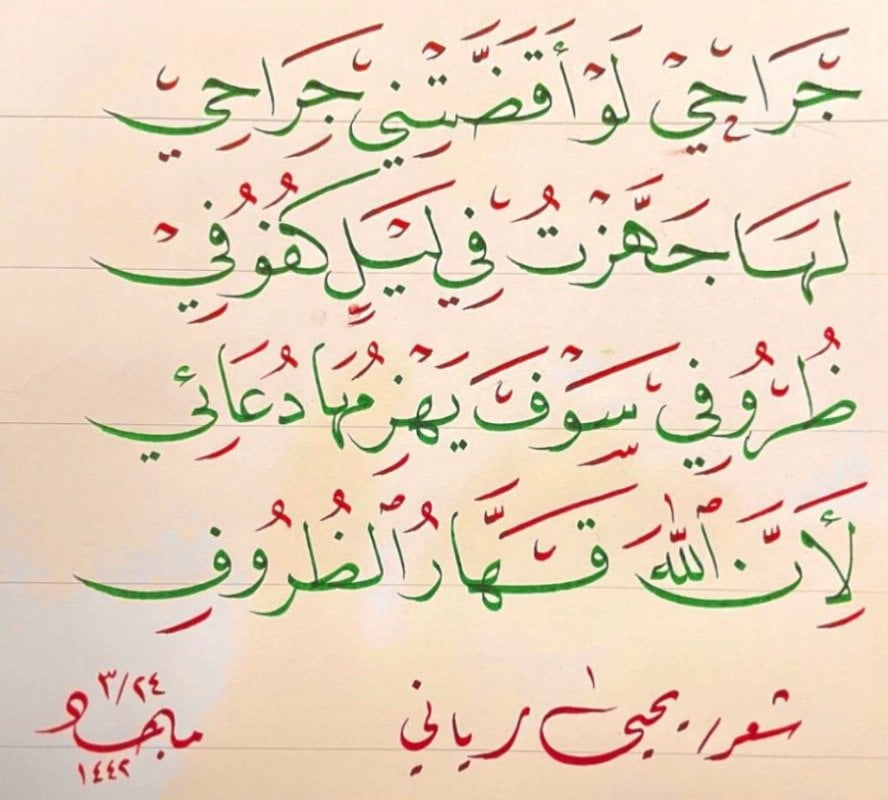 جَرَاحِيْ لَوْ أَقَضَّتْنِي جِرَاحِي
لَهَا جَهَّزْتُ فِي لَيْلٍ كُفُوفِيْ
ظُرُوفِي سَوْفَ يَهْزِمُهَا دُعَائِي
لِأَنَّ ٱللَّهَ قَهَّارُ ٱلظُّرُوفِ
شعر / يحيىٰ رباني
٣/٢٤
١٤٤٢